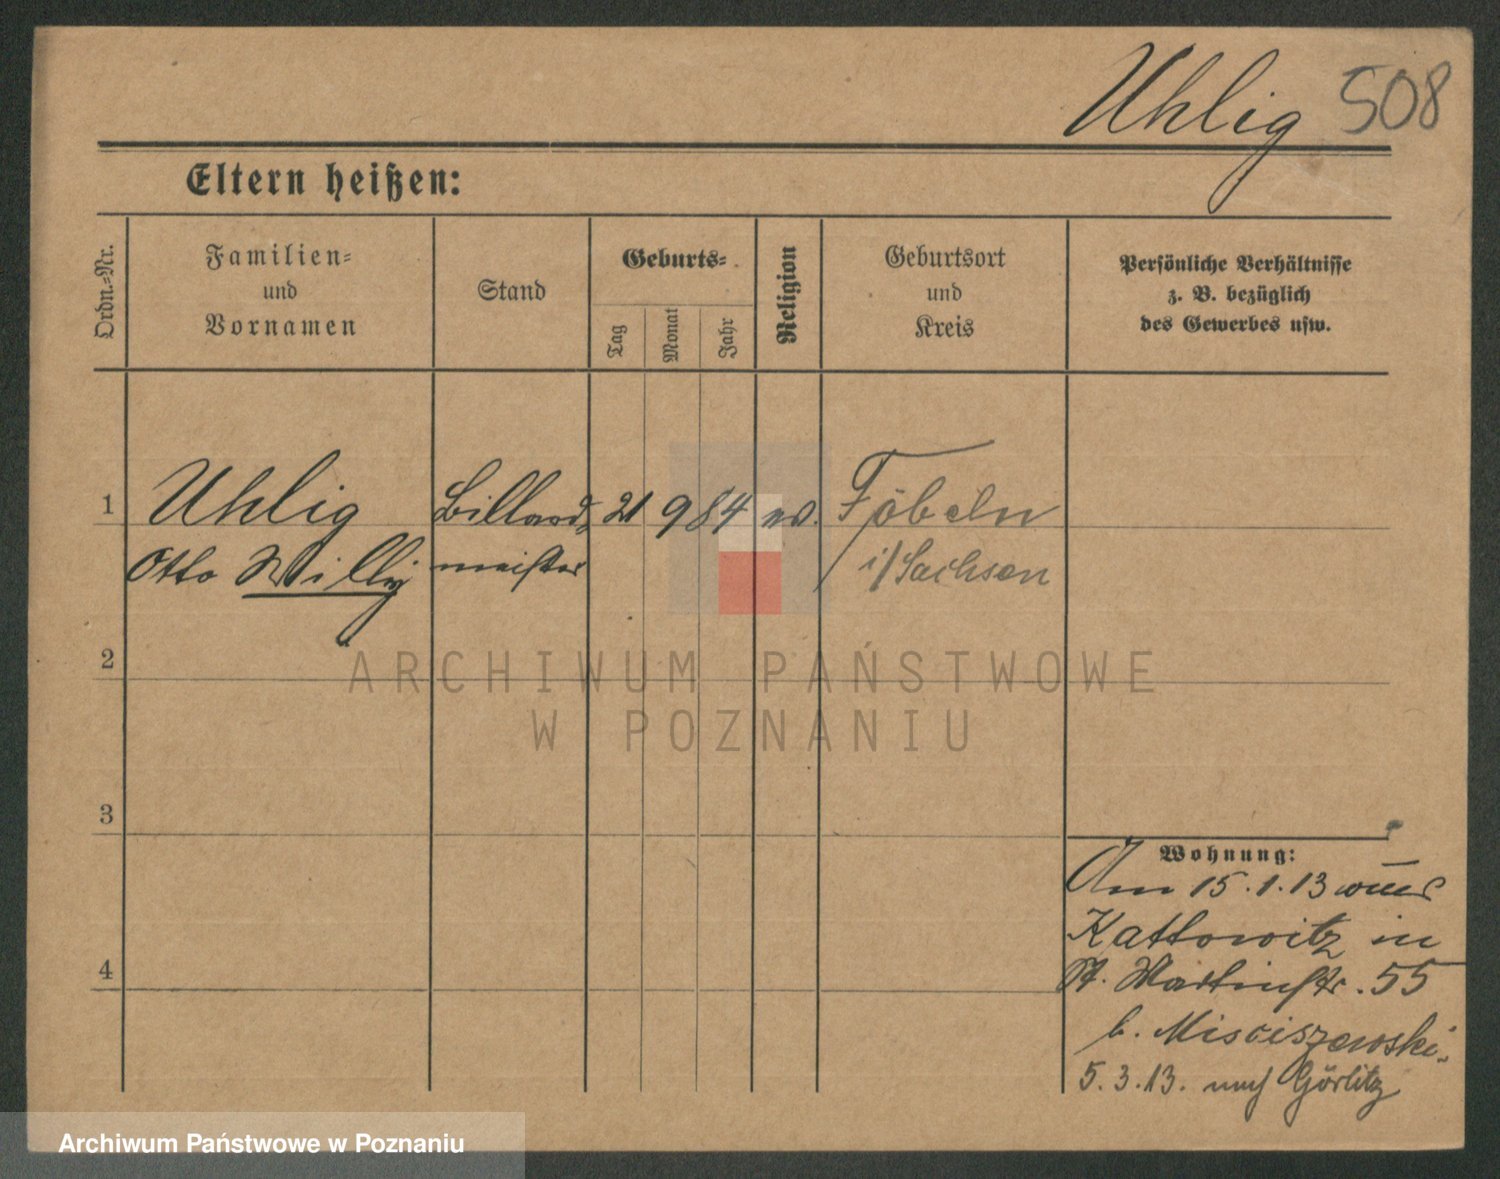 Uhlig 508
Eltern heißen:
Ordn.-Nr.
Familien-
und
Vornamen
Stand
Geburts-
Tag
Monat
Jahr
Religion
Geburtsort
und
Kreis
Persönliche Verhältnisse
z. B. bezüglich
des Gewerbes usw.
1
Uhlig
Otto Willy
Billard
meister
21 9 84 ev.
Föbeln
i/Sachsen
2
3
4
Wohnung:
Am 15.1.13
Kattowitz in
St. Martinstr. 55
b. Misciszewski.
5.3.13. nach Görlitz
ARCHIWUM PAŃSTWOWE
W POZNANIU
Archiwum Państwowe w Poznaniu